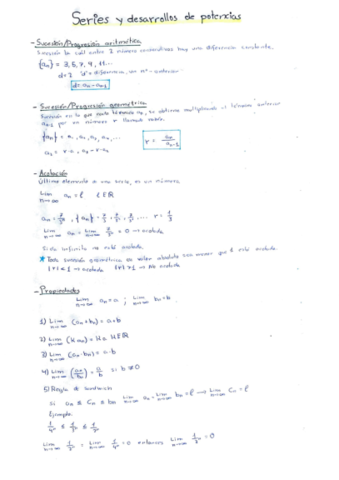 Series y desarrollos de potencias
- Sucesión/Progresión aritmética
Sucesión la cual entre 2 números consecutivos hay una diferencia constante.
{an} = 3, 5, 7, 9, 11...
d = 2 "d" = diferencia, un nº - anterior
d = an - an-1
- Sucesión/Progresión geométrica
Sucesión en la que cada término an, se obtiene multiplicando el término anterior
an-1 por un número r llamado razón.
{an} = a1, a2, a3, ...
r = an / an-1
- Acotación
Último elemento a una serie, es un número
Lim n→∞ an = ℓ ℓ ∈ ℝ
Lim n→∞ an = Lim n→∞ = 0 → acotada
Si da infinito no está acotada.
* Toda sucesión geométrica en valor absoluto sea menor que 1 está acotada.
|r| < 1 → acotada |r| > 1 → No acotada
- Propiedades
Lim n→∞ an = a ; Lim n→∞ bn = b
1) Lim n→∞ (an + bn) = a + b
2) Lim n→∞ (K an) = K a K ∈ ℝ
3) Lim n→∞ (an · bn) = a · b
4) Lim n→∞ (an/bn) = a/b si b ≠ 0
5) Regla de Sandwich
Si an ≤ Cn ≤ bn Lim n→∞ an = Lim n→∞ bn = ℓ → Lim n→∞ Cn = ℓ
Ejemplo:
entonces